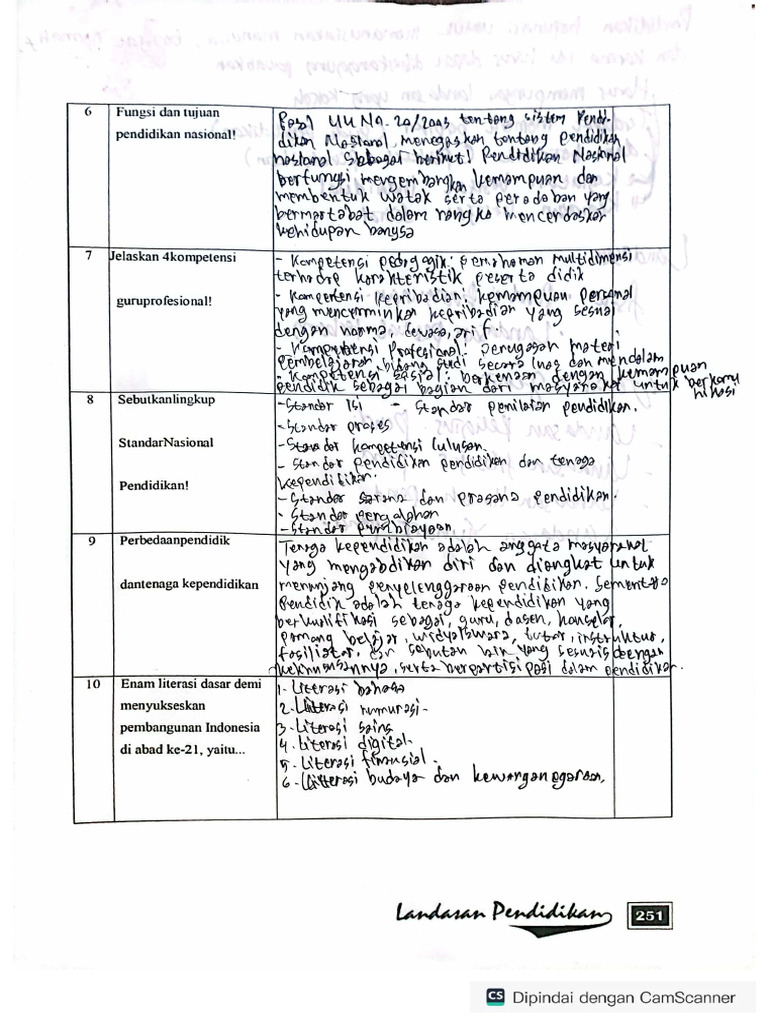 6
Fungsi dan tujuan
pendidikan nasional!
Pasal UU NO. 20/2003 tentang sistem Pendi-
dikan Nasional, menegaskan tentang pendidikan
nasional sebagai berikut! Pendidikan Nasional
berfungsi mengembangkan kemampuan dan
membentuk watak serta peradaban yang
bermartabat dalam rangka mencerdaskan
kehidupan bangsa
7
Jelaskan 4kompetensi
guruprofesional!
- Kompetensi pedagogik: pemahaman multidimensi
terhadap karakteristik peserta didik
- Kompetensi kepribadian: kemampuan personal
yang mencerminkan kepribadian yang sesuai
dengan norma, dewasa, arif.
- Kompetensi Profesional: penguasaan materi
Pembelajaran bidang studi secara luas dan mendalam
- Kompetensi sosial: berkenaan dengan kemampuan
pendidik sebagai bagian dari masyarakat untuk berkomu
nikasi
8
Sebutkanlingkup
StandarNasional
Pendidikan!
- Standar Isi - Standar penilaian pendidikan.
- Standar proses
- Standar kompetensi lulusan.
- Standar pendidikan pendidikan dan tenaga
kependidikan.
- Standar sarana dan prasana pendidikan.
- Standar
- Standar pembiayaan.
9
Perbedaanpendidik
dantenaga kependidikan
Tenaga kependidikan adalah anggota masyarakat
yang mengabdikan diri dan diangkat untuk
menunjang penyelenggaraan pendidikan. Sementara
Pendidik adalah tenaga kependidikan yang
berkualifikasi sebagai, guru, dosen, konselor,
pamong belajar, widyaiswara, tutor, instruktur,
fasilitator, dan sebutan lain yang sesuai dengan
kekhususannya, serta berpartisipasi dalam pendidikan.
10
Enam literasi dasar demi
menyukseskan
pembangunan Indonesia
di abad ke-21, yaitu...
1. Literasi bahasa
2. Literasi numurasi.
3. Literasi sains
4. Literasi digital.
5. Literasi finansial.
6. Literasi budaya dan kewarganegaraan.
Landasan Pendidikan 251
CS Dipindai dengan CamScanner